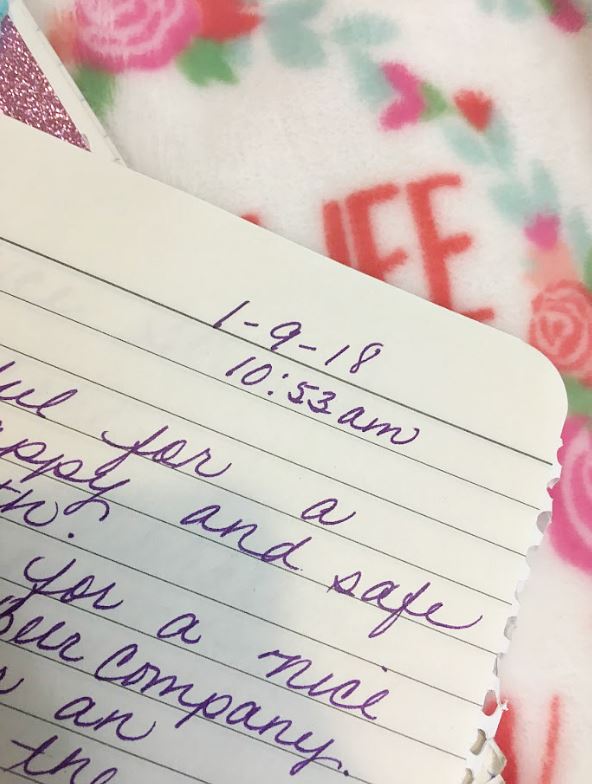 LIFE
1-9-18
10:53am
ful for a
appy and safe
th.
for a nice
company.
an
the